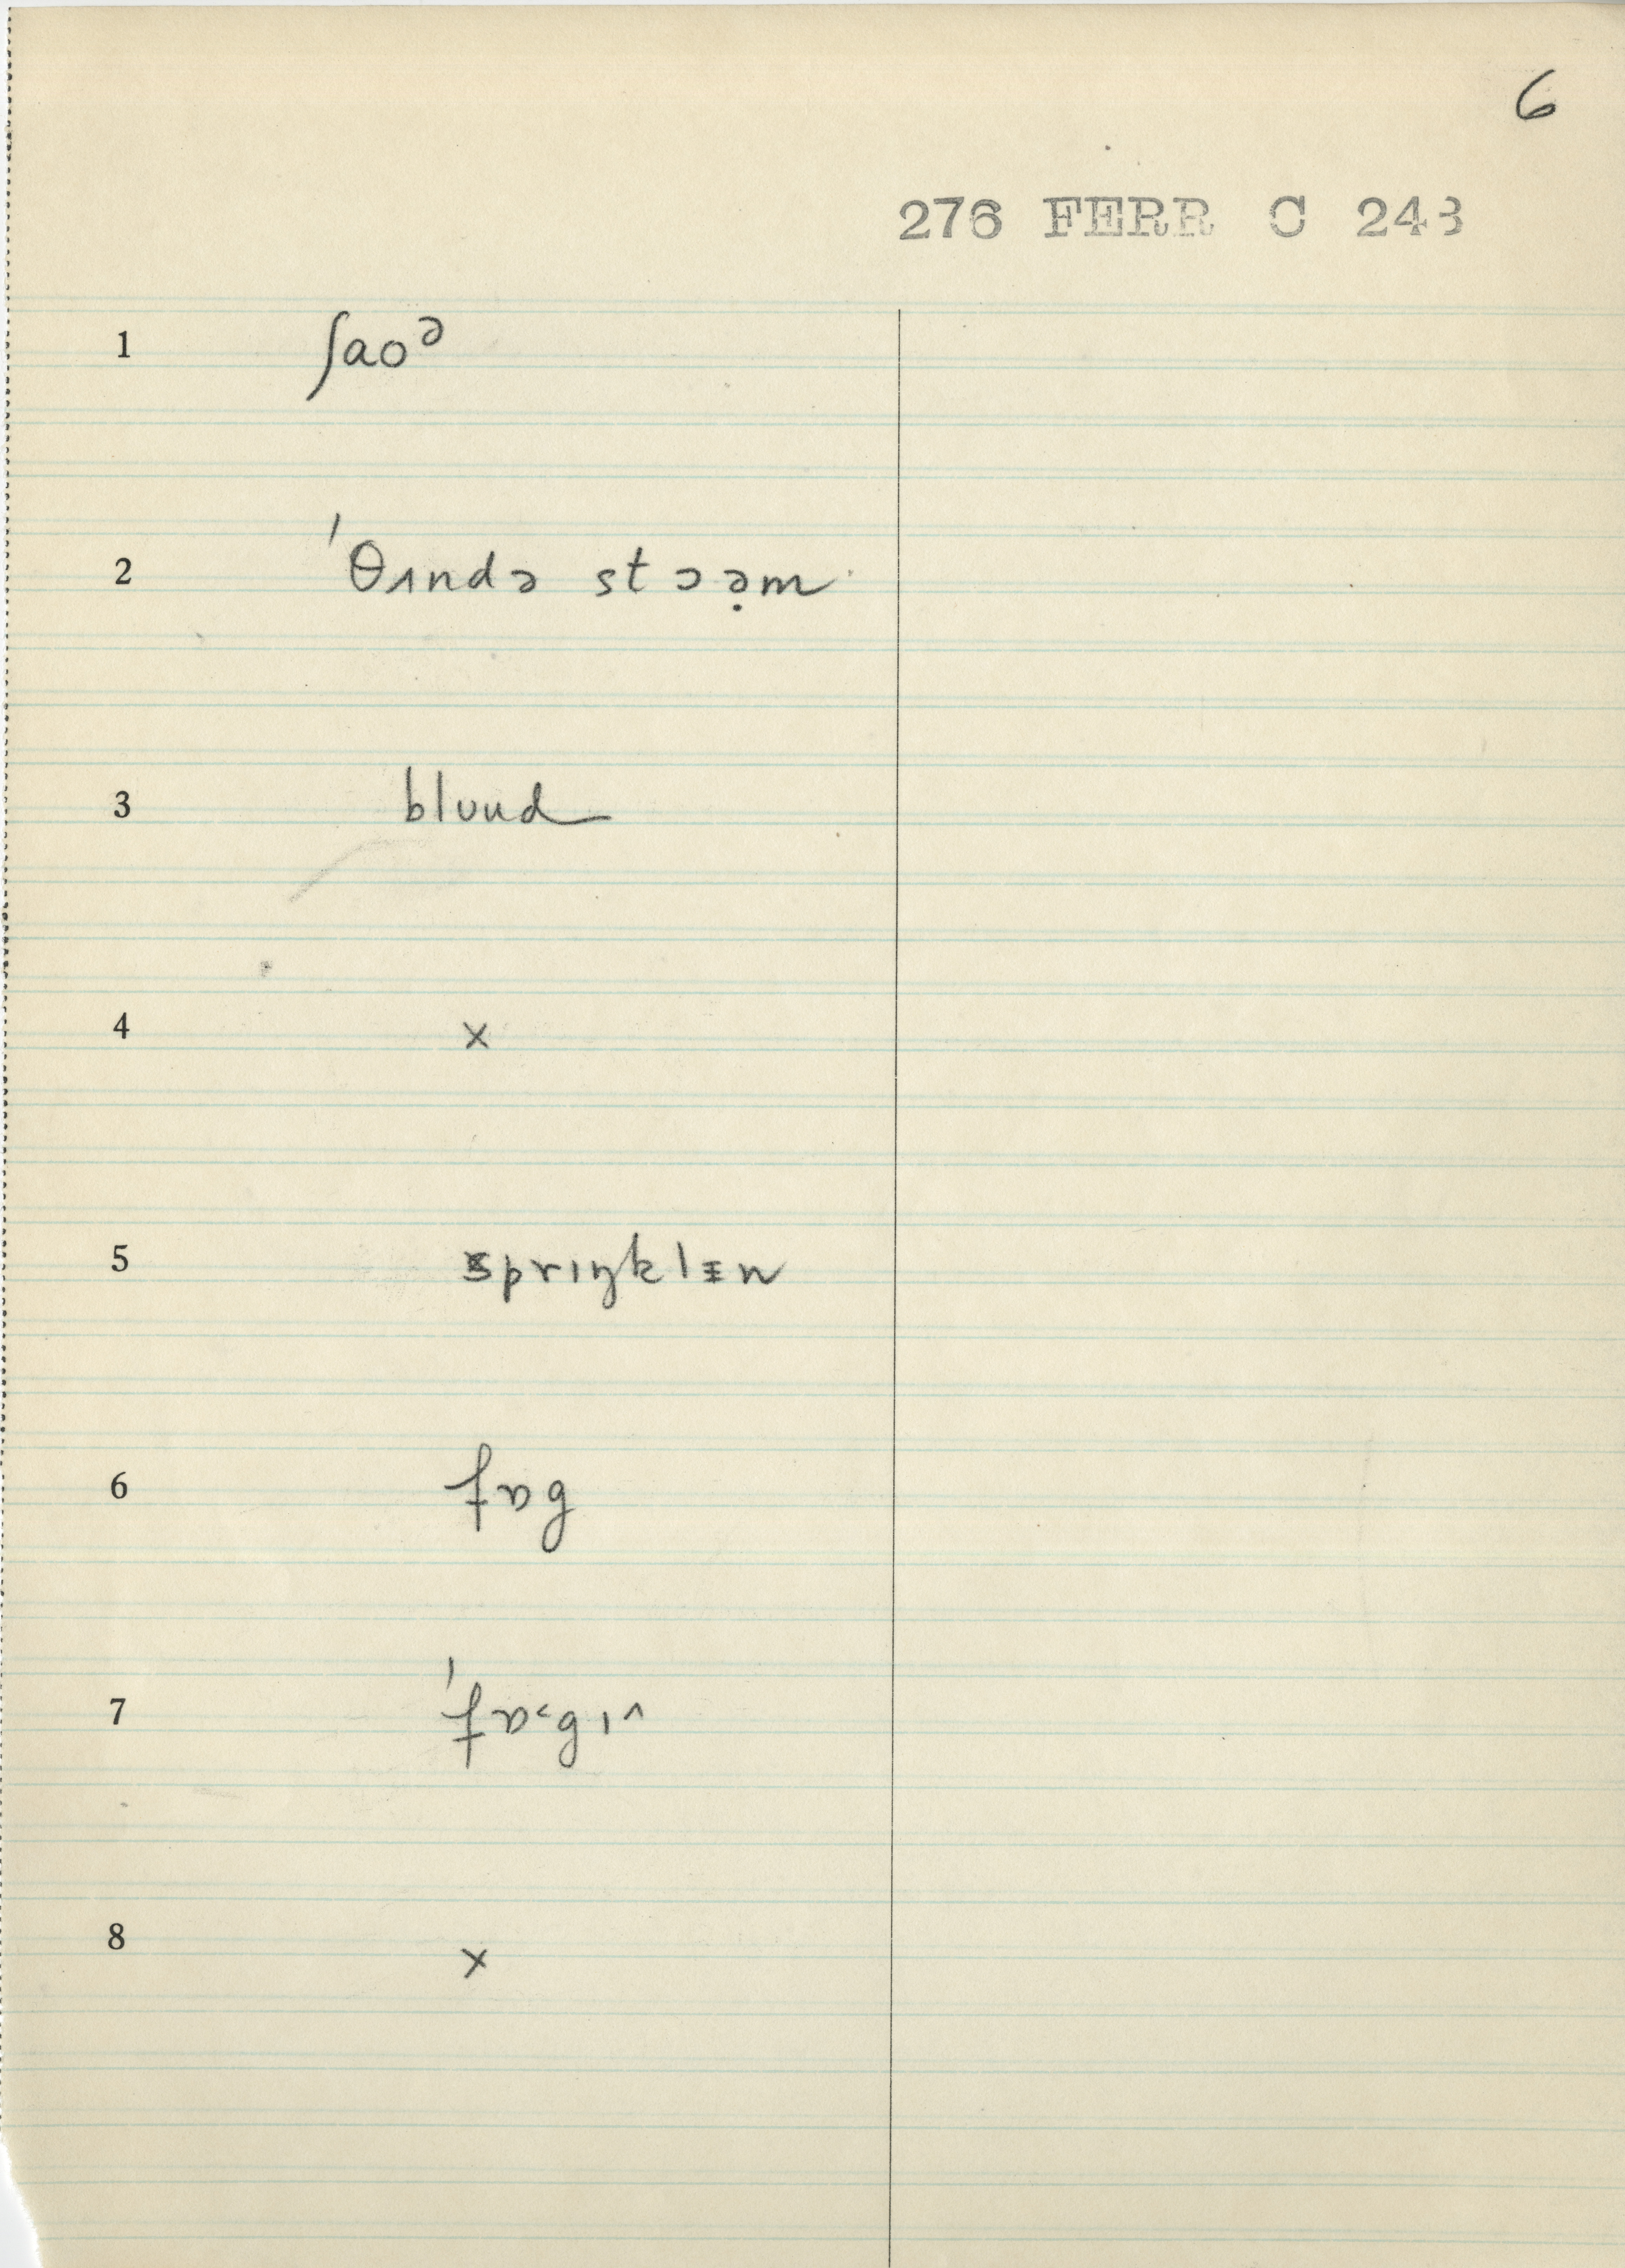 6
276 FERR C 248
1 ʃaoᵊ
2 ˈθʌndə stɔə̣m
3 blʊud
4 x
5 sprɪŋklɪn
6 fɒg
7 ˈfɒ˂gɪ^
8 x